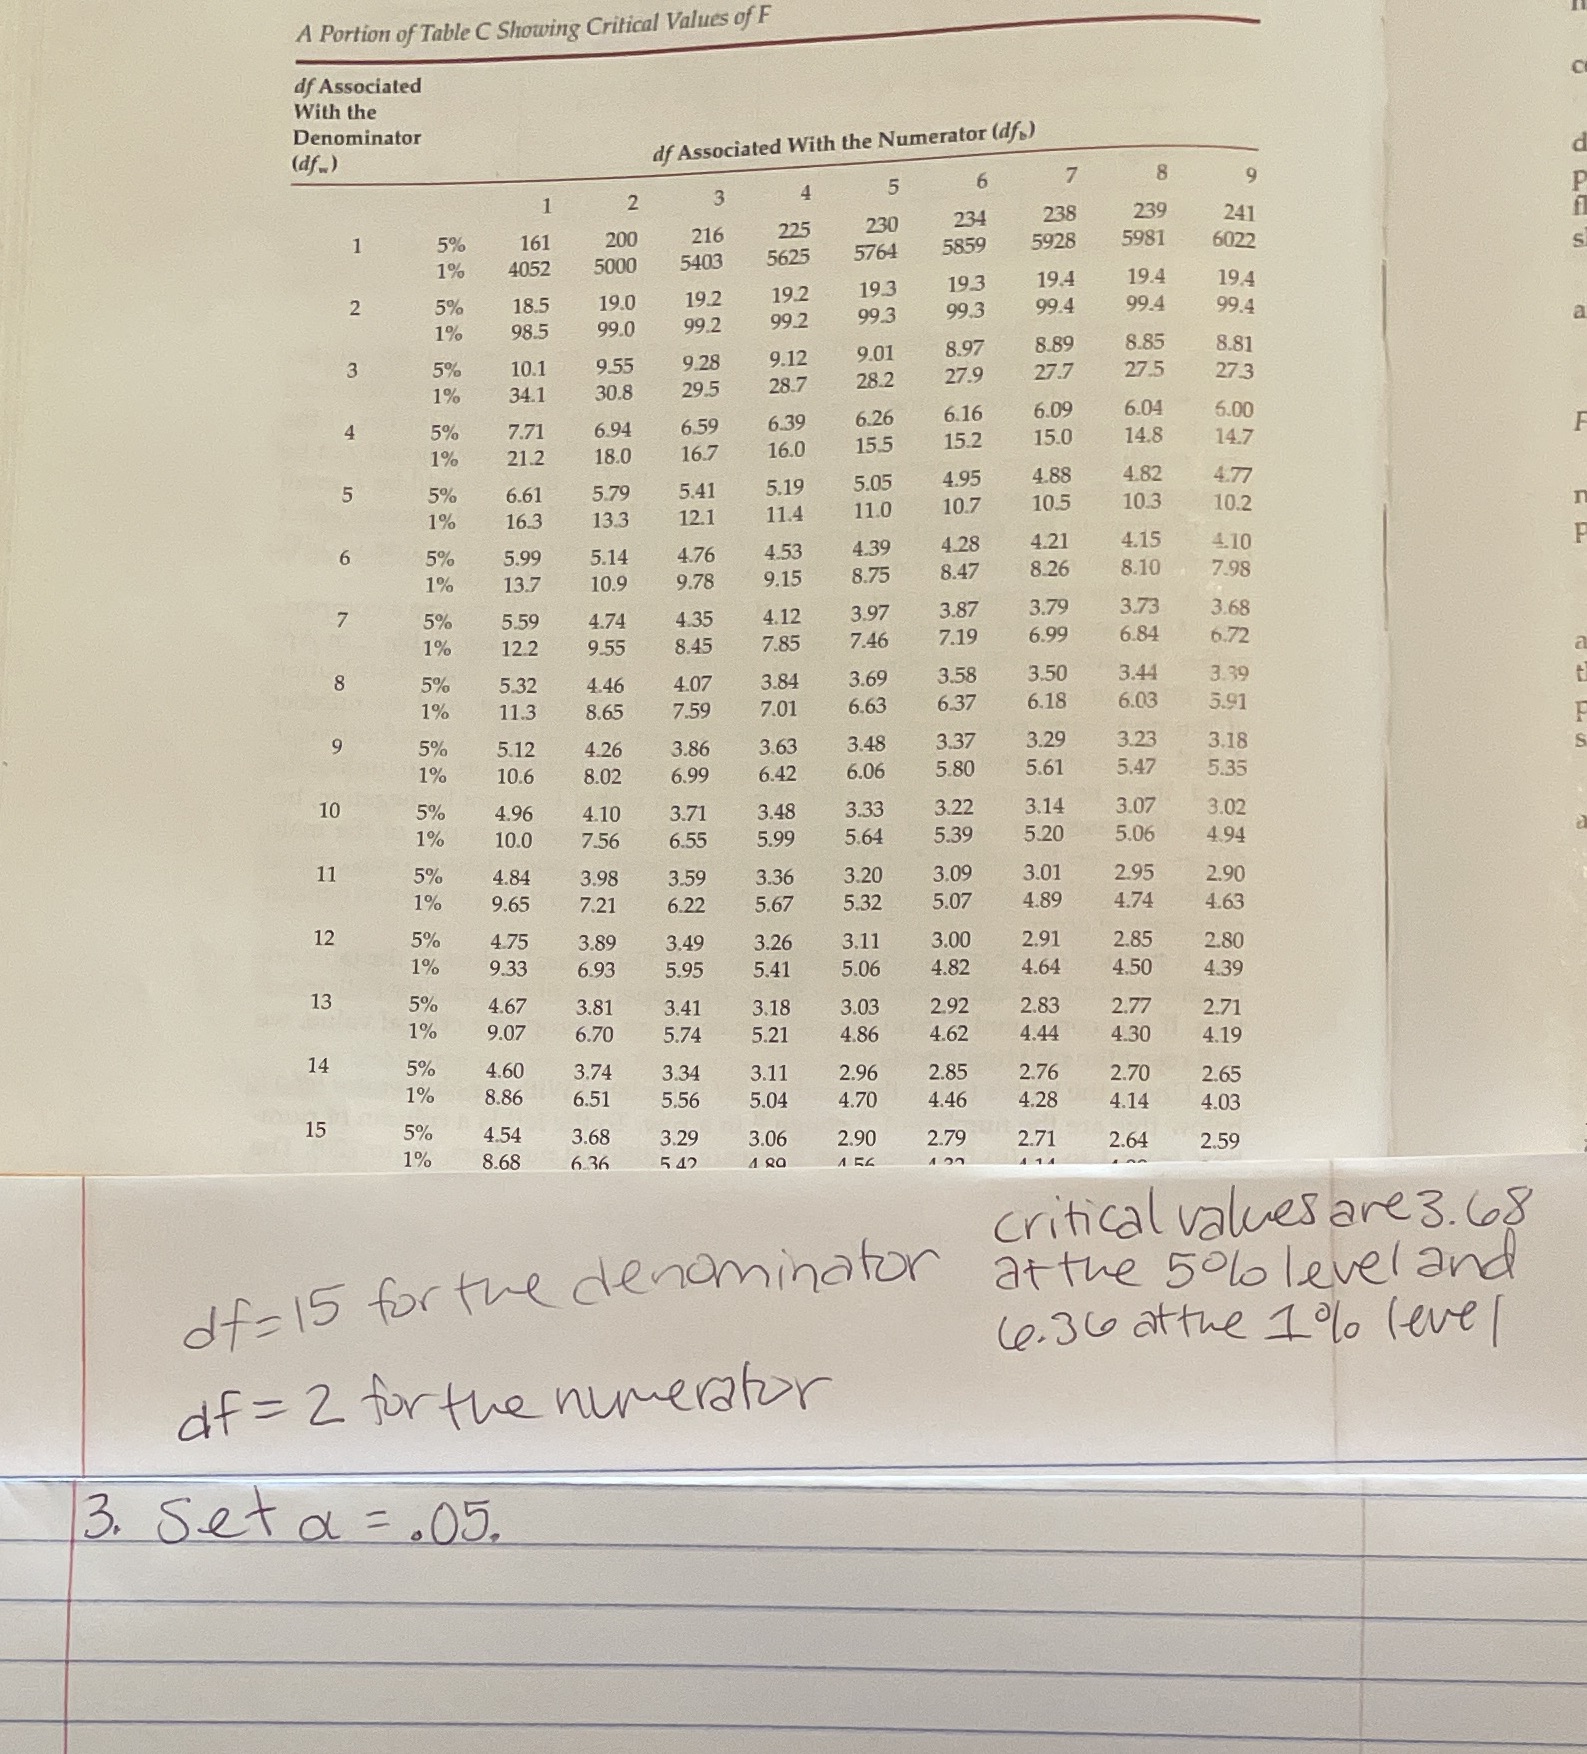 A Portion of Table C Showing Critical Values of F
df Associated
With the
Denominator
(df_w)
df Associated With the Numerator (df_b)
1 2 3 4 5 6 7 8 9
1 5% 161 200 216 225 230 234 238 239 241
1% 4052 5000 5403 5625 5764 5859 5928 5981 6022
2 5% 18.5 19.0 19.2 19.2 19.3 19.3 19.4 19.4 19.4
1% 98.5 99.0 99.2 99.2 99.3 99.3 99.4 99.4 99.4
3 5% 10.1 9.55 9.28 9.12 9.01 8.97 8.89 8.85 8.81
1% 34.1 30.8 29.5 28.7 28.2 27.9 27.7 27.5 27.3
4 5% 7.71 6.94 6.59 6.39 6.26 6.16 6.09 6.04 6.00
1% 21.2 18.0 16.7 16.0 15.5 15.2 15.0 14.8 14.7
5 5% 6.61 5.79 5.41 5.19 5.05 4.95 4.88 4.82 4.77
1% 16.3 13.3 12.1 11.4 11.0 10.7 10.5 10.3 10.2
6 5% 5.99 5.14 4.76 4.53 4.39 4.28 4.21 4.15 4.10
1% 13.7 10.9 9.78 9.15 8.75 8.47 8.26 8.10 7.98
7 5% 5.59 4.74 4.35 4.12 3.97 3.87 3.79 3.73 3.68
1% 12.2 9.55 8.45 7.85 7.46 7.19 6.99 6.84 6.72
8 5% 5.32 4.46 4.07 3.84 3.69 3.58 3.50 3.44 3.39
1% 11.3 8.65 7.59 7.01 6.63 6.37 6.18 6.03 5.91
9 5% 5.12 4.26 3.86 3.63 3.48 3.37 3.29 3.23 3.18
1% 10.6 8.02 6.99 6.42 6.06 5.80 5.61 5.47 5.35
10 5% 4.96 4.10 3.71 3.48 3.33 3.22 3.14 3.07 3.02
1% 10.0 7.56 6.55 5.99 5.64 5.39 5.20 5.06 4.94
11 5% 4.84 3.98 3.59 3.36 3.20 3.09 3.01 2.95 2.90
1% 9.65 7.21 6.22 5.67 5.32 5.07 4.89 4.74 4.63
12 5% 4.75 3.89 3.49 3.26 3.11 3.00 2.91 2.85 2.80
1% 9.33 6.93 5.95 5.41 5.06 4.82 4.64 4.50 4.39
13 5% 4.67 3.81 3.41 3.18 3.03 2.92 2.83 2.77 2.71
1% 9.07 6.70 5.74 5.21 4.86 4.62 4.44 4.30 4.19
14 5% 4.60 3.74 3.34 3.11 2.96 2.85 2.76 2.70 2.65
1% 8.86 6.51 5.56 5.04 4.70 4.46 4.28 4.14 4.03
15 5% 4.54 3.68 3.29 3.06 2.90 2.79 2.71 2.64 2.59
1% 8.68 6.36 5.42 4.89 4.56
df=15 for the denominator
df=2 for the numerator
critical values are 3.68
at the 5% level and
6.36 at the 1% level
3. Set α = .05.